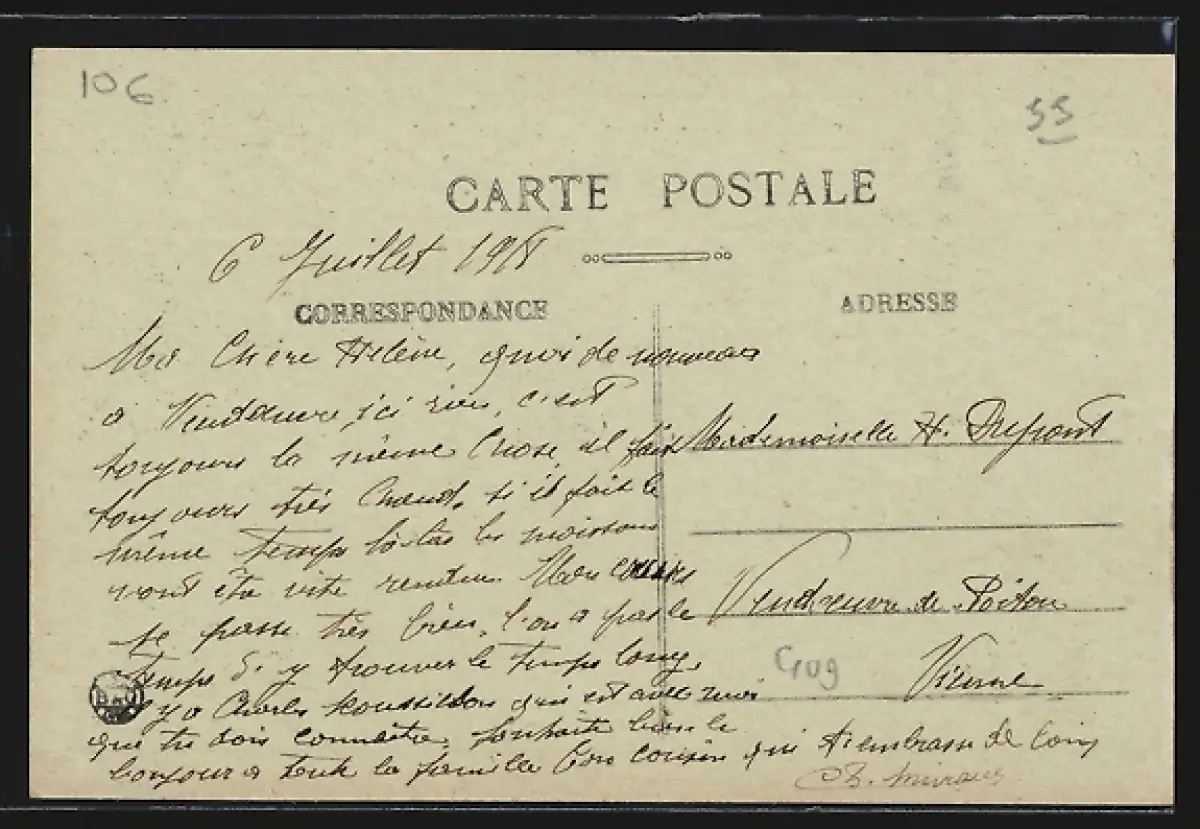 106
55
CARTE POSTALE
6 Juillet 1918
CORRESPONDANCE
ADRESSE
Ma Chère Hélène, quoi de nouveau
à Vendeuvre, ici rien, c'est
toujours la même chose il fait
toujours très chaud, si il fait le
même temps là bas les moissons
vont être vite rendue. Mon
se passe très bien, l'on a pas le
temps d'y trouver le temps long,
y a Charles Roussillon qui est avec moi
que tu dois connaître, souhaite bien le
bonjour a toute la famille Ton cousin qui t'embrasse de loin
Ch.
Mademoiselle H. Dupont
Vendeuvre de Poitou
Vienne